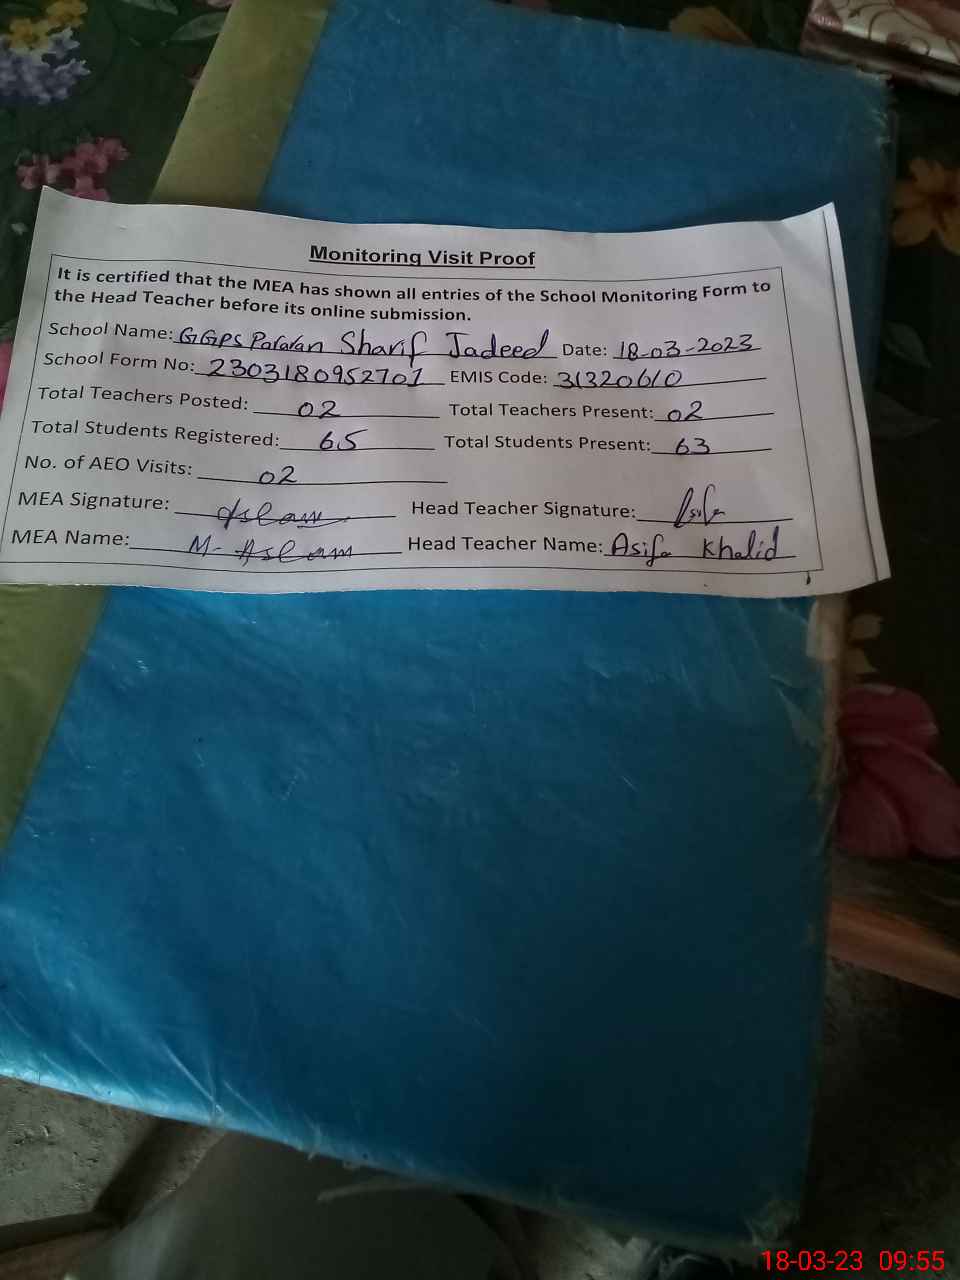 Monitoring Visit Proof
It is certified that the MEA has shown all entries of the School Monitoring Form to
the Head Teacher before its online submission.
School Name: GGPS Pararan Sharif Jadeed Date: 18-03-2023
School Form No: 2303180952701 EMIS Code: 31320610
Total Teachers Posted: 02 Total Teachers Present: 02
Total Students Registered: 65 Total Students Present: 63
No. of AEO Visits: 02
MEA Signature: Aslam Head Teacher Signature:
MEA Name: M. Aslam Head Teacher Name: Asifa Khalid
18-03-23 09:55